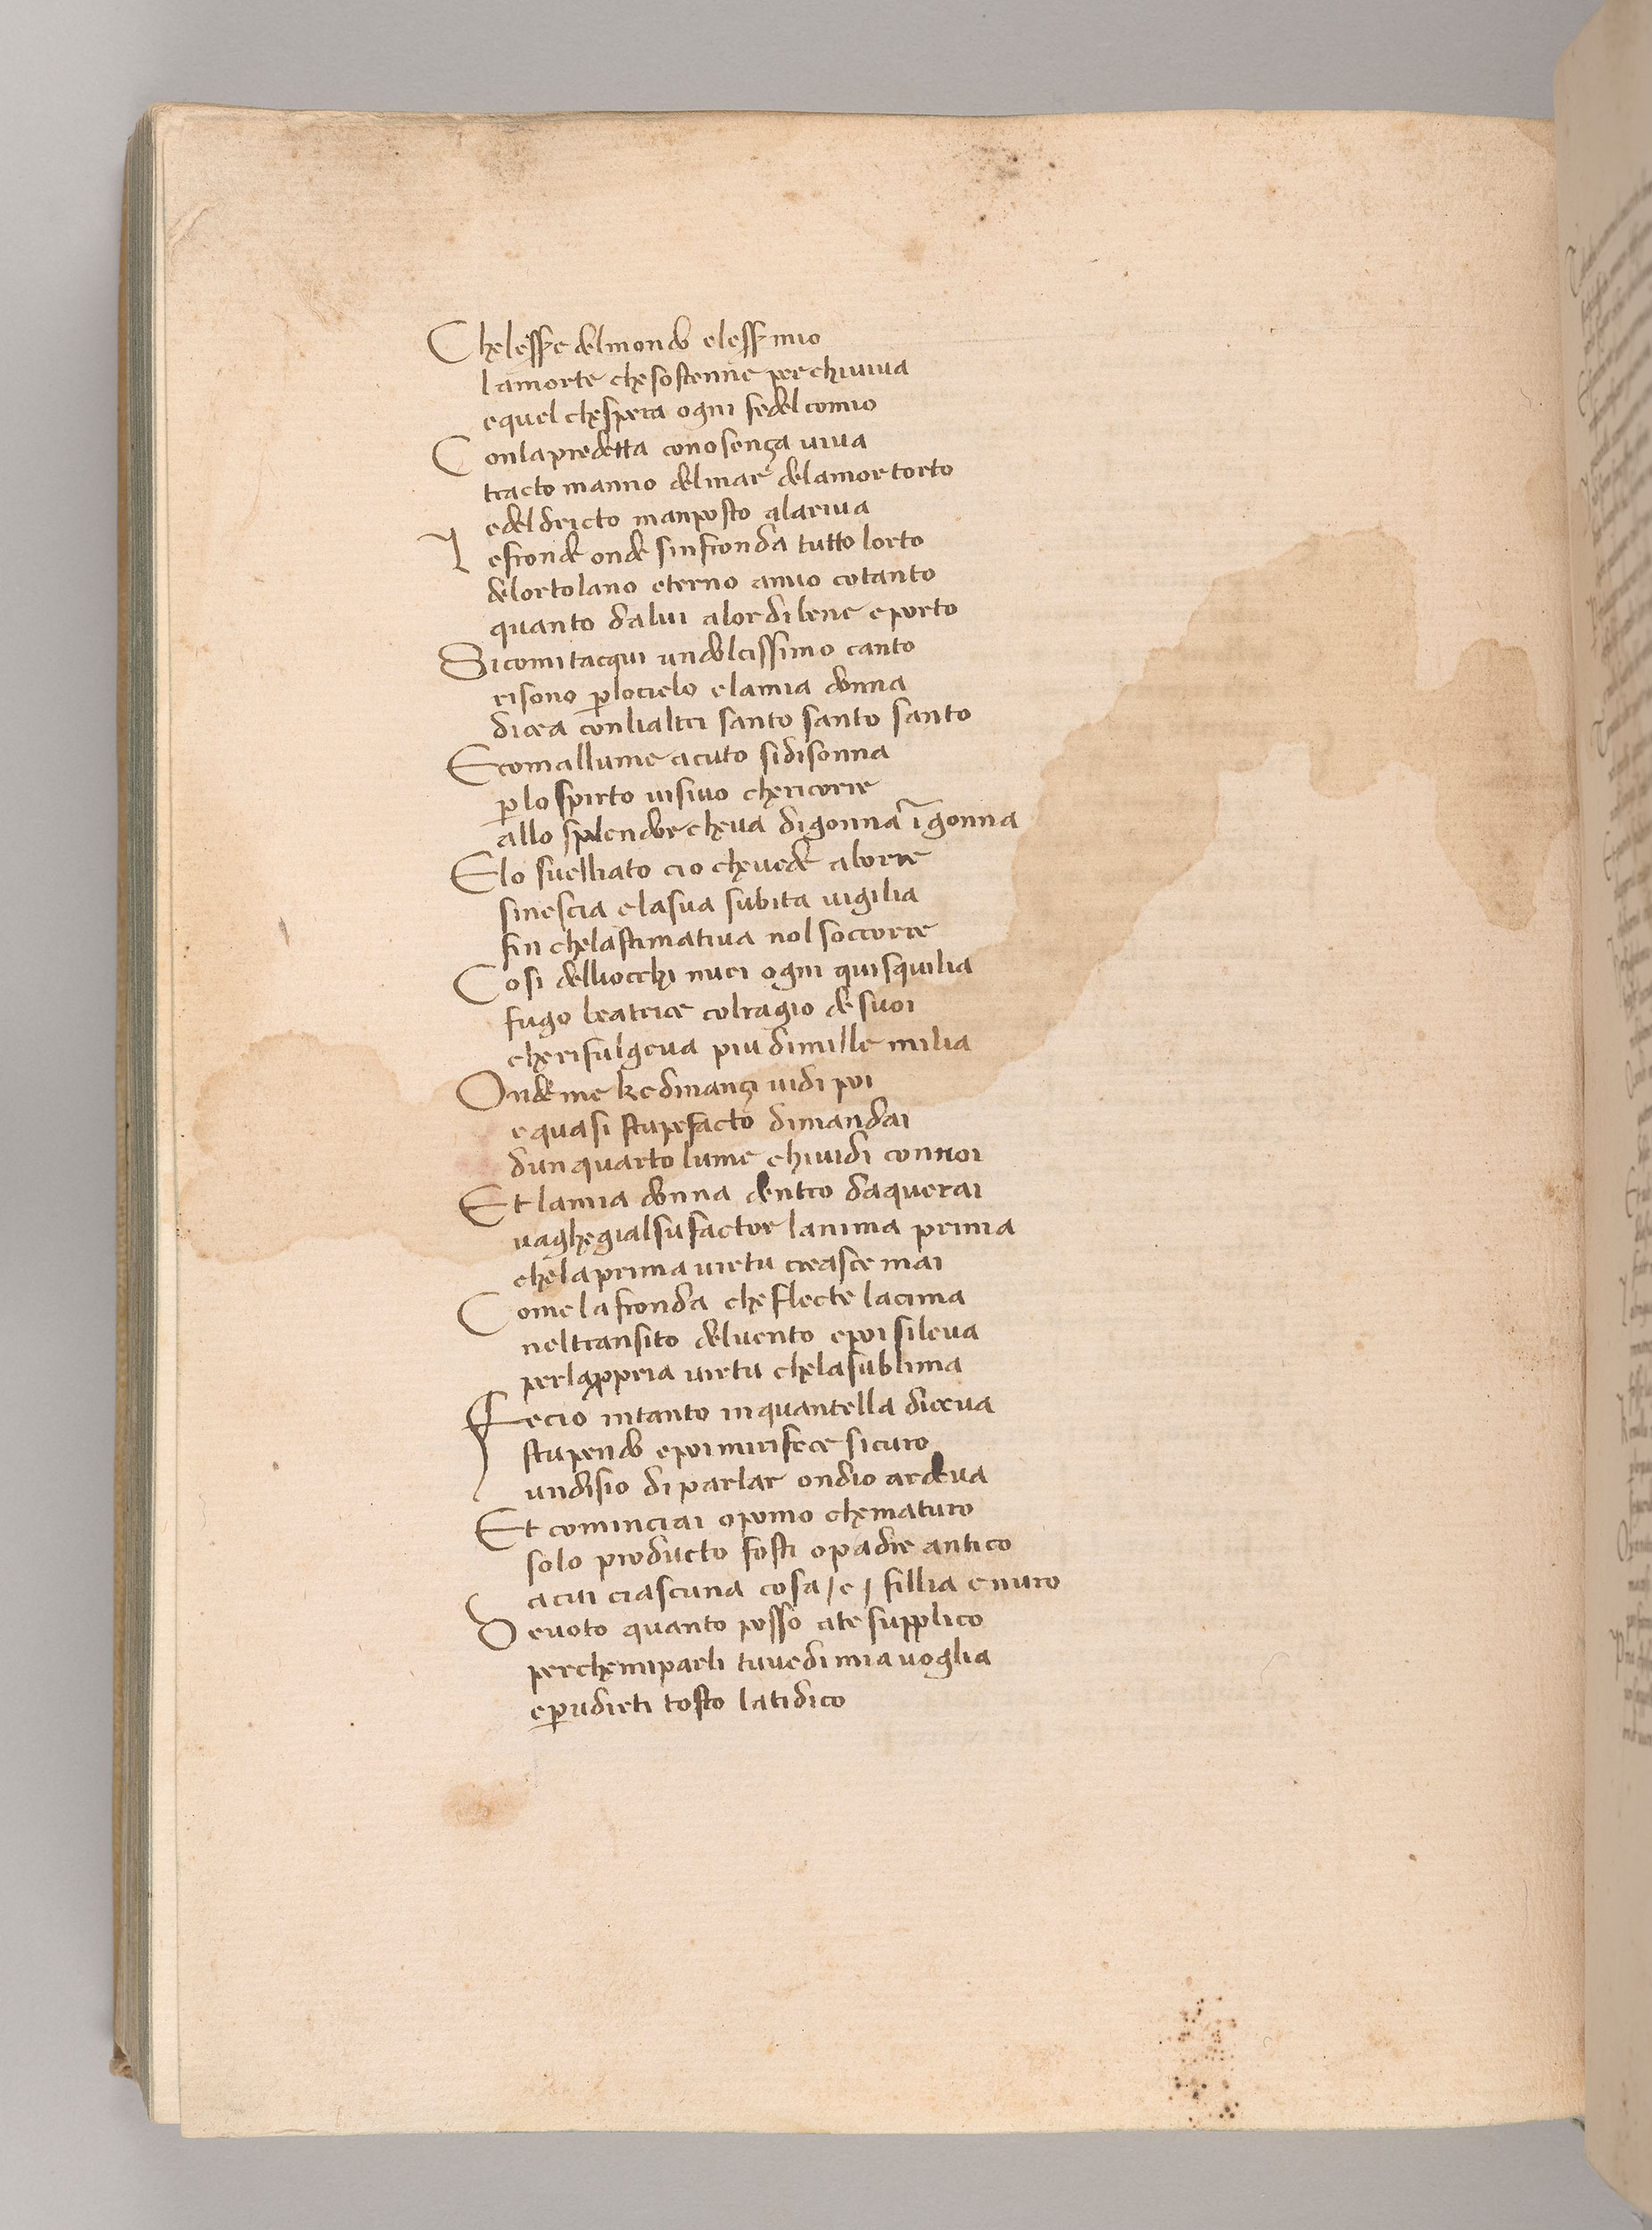 Chelesser delmondo elesser mio
lamorte chesostenne perchiviva
equel chespera ogni fedel comio
Conlapredetta conosenza viva
tracto manno delmar delamor torto
edel dricto manposto alariva
Le fronde onde sinfronda tutto lorto
delortolano eterno amio cotanto
quanto dalui alor dibene eporto
Sicomitacqui undolcissimo canto
risono plocielo elamia donna
dicea conlialtri santo santo santo
Ecomallume acuto sidisonna
plo spirto visivo chericorre
allo splendor cheva digonna ī gonna
Elo svelliato cio chevede aborre
sinescia elasua subita vigilia
fin chelastimativa nol soccorre
Cosi delliocchi miei ogni quisquilia
fugo beatrice colragio de suoi
cherifulgeva piu dimille milia
Onde me kedinanzi vidi poi
equasi stupefacto dimandai
dun quarto lume chividi connoi
Et lamia donna dentro daquerai
vaghegialsu factor lanima prima
chelaprima virtu creasce mai
Come lafronda che flecte lacima
neltransito delvento epoi sileva
perlappria virtu chelasublima
Fecio intanto inquantella diceva
stupendo epoimirifece sicuro
undisio diparlar ondio ardeva
Et cominciai opomo chematuro
solo producto fosti opadre antico
acui ciascuna cosa / e / fillia enuro
Devoto quanto posso ate supplico
perchemiparli tuvedi mia voglia
epudirti tosto latidico